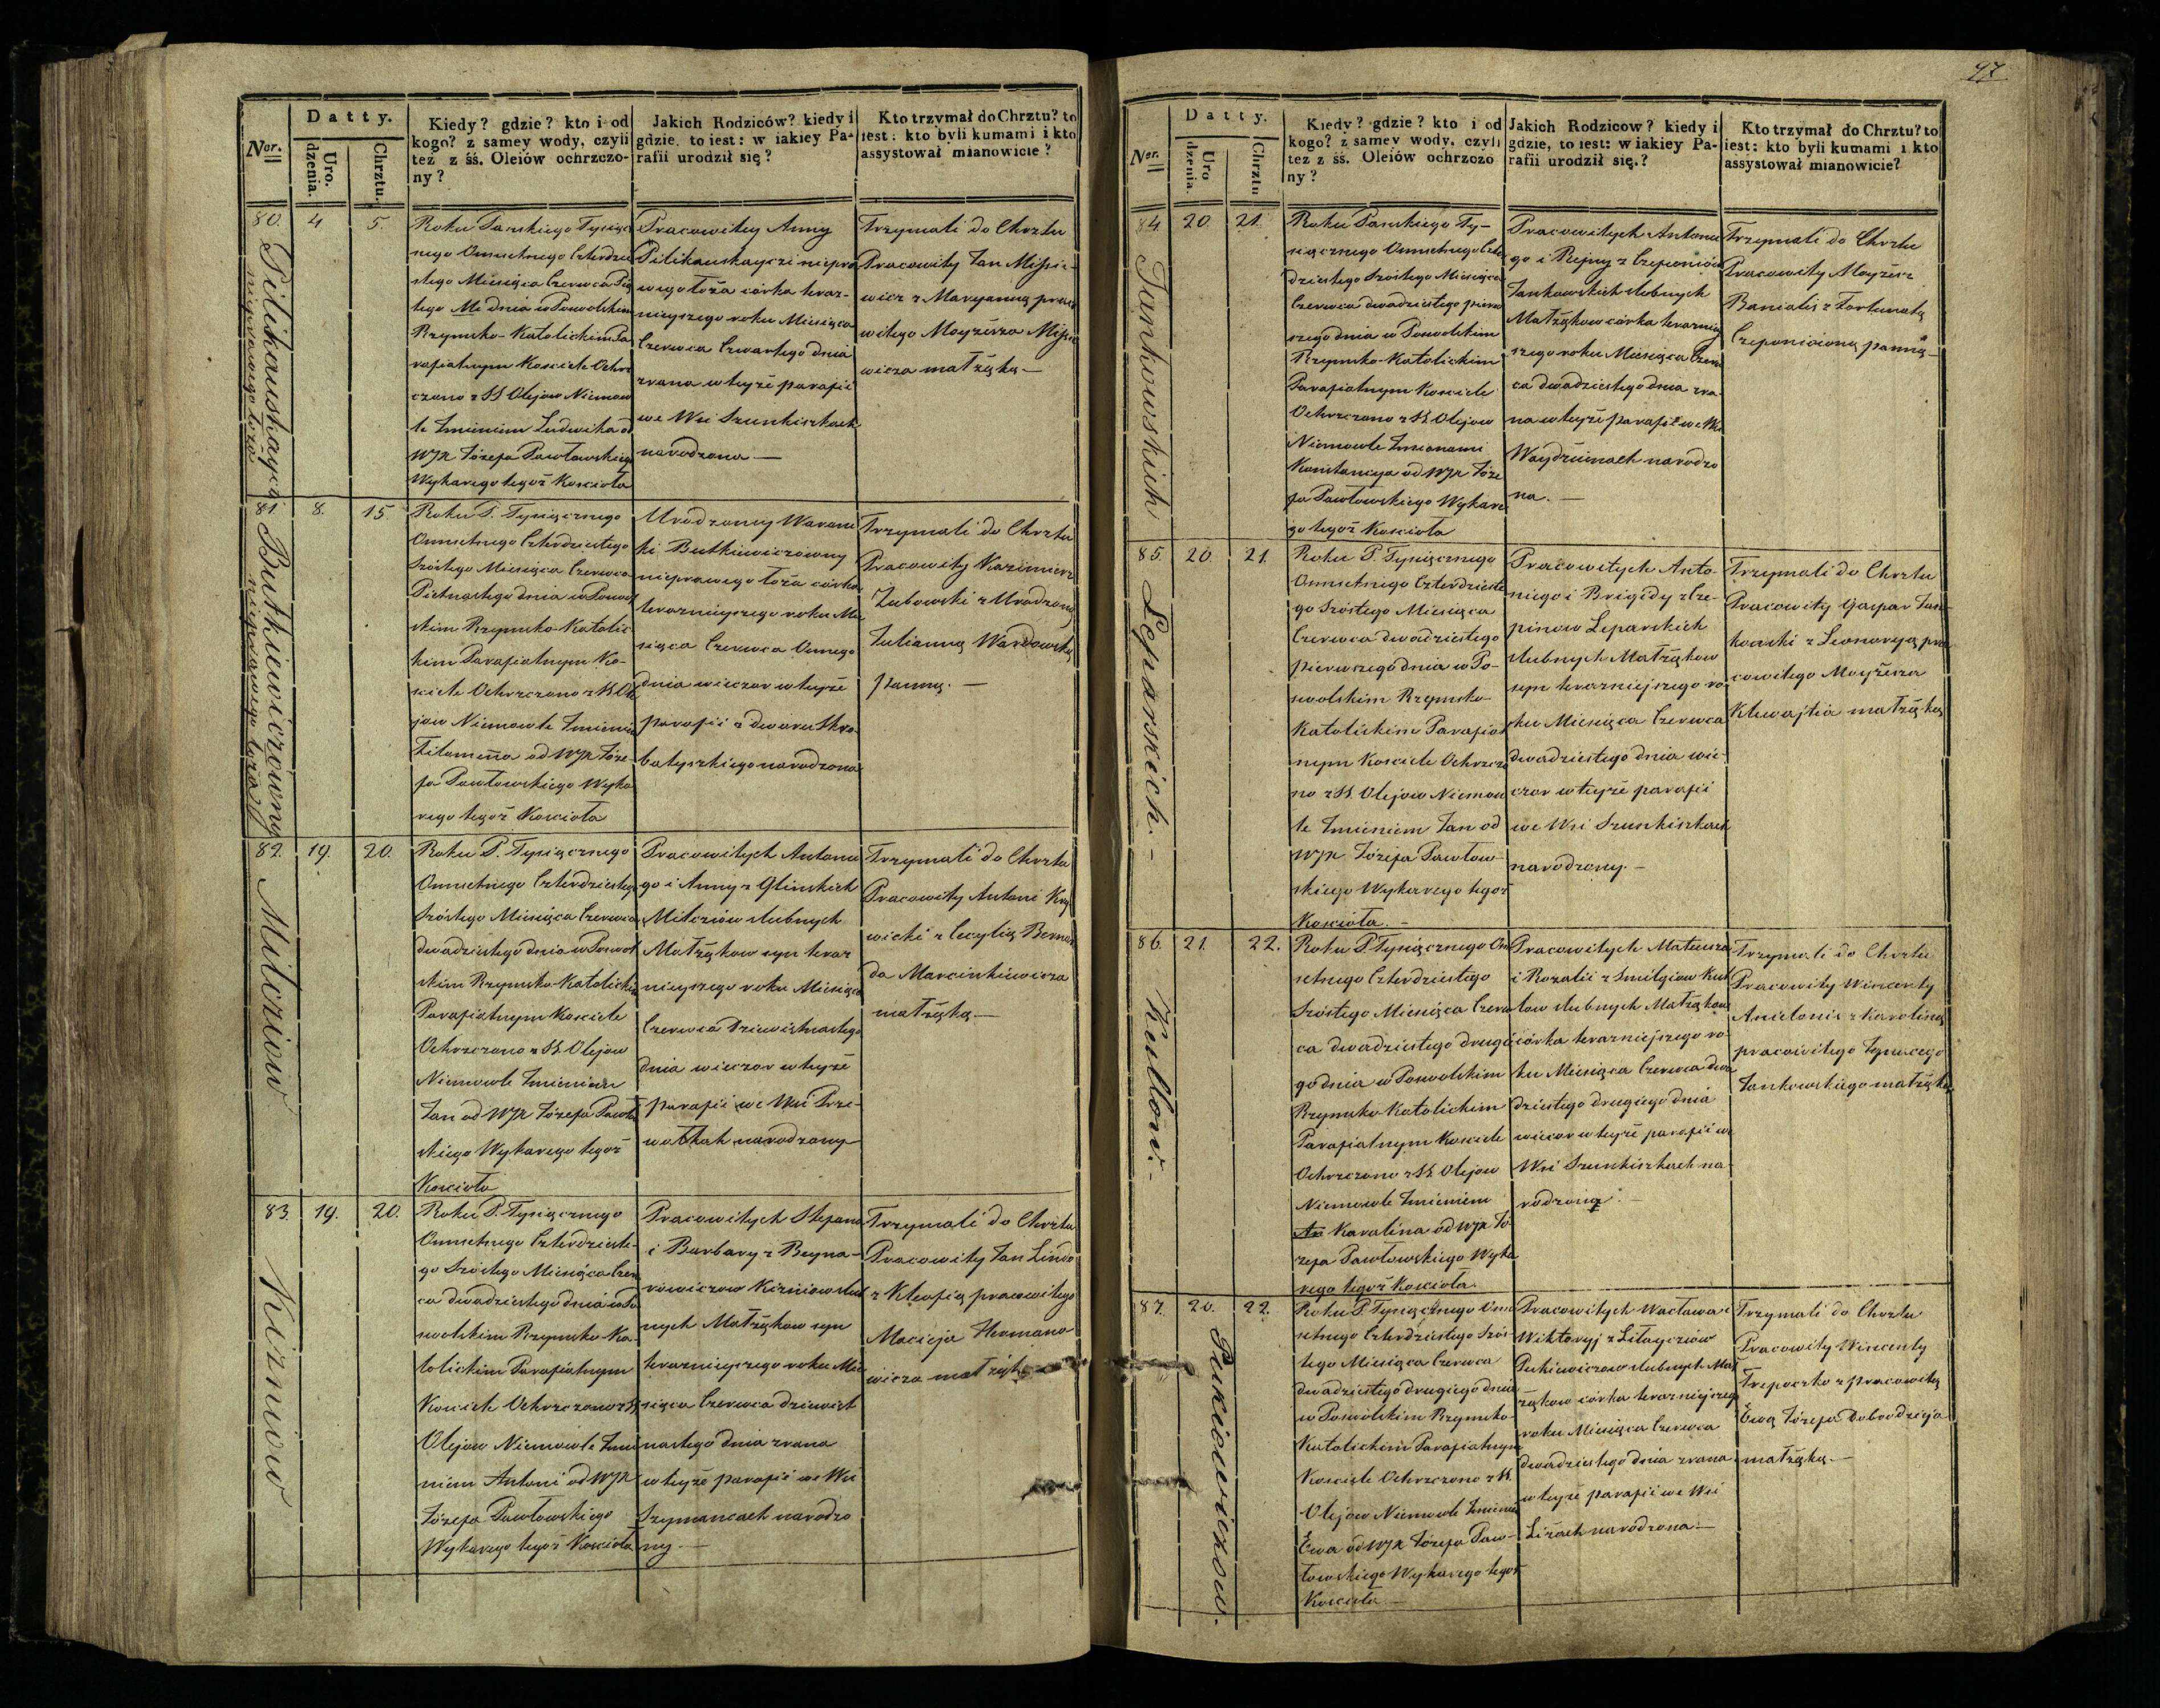 47
Datty.
Nor.
Uro.
dzenia.
Chrztu.
Kiedy? gdzie? kto i od
kogo? z samey wody, czyli
też z śś. Oleiów ochrzczo-
ny?
Jakich Rodziców? kiedy i
gdzie, to iest: w iakiey Pa-
rafii urodził się?
Kto trzymał do Chrztu? to
iest: kto byli kumami i kto
assystował mianowicie?
80.
4
5.
nieprawego łoża
Roku Pańskiego Tysiącz
nego Osmsetnego Czterdzie
stego Miesiąca Czerwca Pią
tego dnia w Poswolskim
Rzymsko-Katolickim Pa
rafialnym Kosciele Ochrz
czono z SS Olejow Niemow
le Imieniem Ludwika od
WJX Józefa Pawłowskiego
Wykarego tegoż Kościoła
Pracowitey Anny
niepra
wego łoża córka teraz-
nieyszego roku Miesiąca
Czerwca Czwartego dnia
zrana w teyże parafii
we Wsi Szunkiszkach
narodzona —
Trzymali do Chrztu
Pracowity Jan Missie-
wicz z Maryanną praco
witego Moyżesza Missie
wicza małżąką —
81.
8.
15.
Butkiewiczowny
nieprawego łoża
Roku P. Tysiącznego
Osmsetnego Czterdziestego
Szóstego Miesiąca Czerwca
Pietnastego dnia w Poswol
skim Rzymsko-Katolic
kim Parafialnym Ko-
sciele Ochrzczono z SS. Ole
jow Niemowle Imieniem
Filomena od WJX Józe
fa Pawłowskiego Wyka
rego tegoż Kościoła
Urodzoney Weroni
ki Butkiewiczowny
nieprawego łoża córka
teraznieyszego roku Mie
siąca Czerwca Osmego
dnia wieczor w teyże
parafii z dworu Skro-
batyszkiego narodzona
Trzymali do Chrztu
Pracowity Kazimierz
Zubowski z Urodzoną
Julianną
panną. —
82.
19.
20.
Milcziow
Roku P. Tysiącznego
Osmsetnego Czterdziestego
Szóstego Miesiąca Czerwca
dwadziestego dnia w Poswol
skim Rzymsko-Katolickim
Parafialnym Kosciele
Ochrzczono z SS Olejow
Niemowle Imieniem
Jan od WJX Józefa Pawłow
skiego Wykarego tegoż
Kościoła
Pracowitych Antonie
go i Anny z Glinskich
Milcziów slubnych
Małżąkow syn teraz
nieyszego roku Miesiąca
Czerwca Dziewietnastego
dnia wieczor w teyże
parafii we Wsi Prze-
wałkah narodzony
Trzymali do Chrztu
Pracowity Antoni Krzy
wicki z Cecylią Bernar
da Marcinkiewicza
małżąką —
83.
19.
20.
Kizniow
Roku P. Tysiącznego
Osmsetnego Czterdzieste-
go Szóstego Miesiąca Czerw
ca dwadziestego dnia w Po
swolskim Rzymsko-Ka-
tolickim Parafialnym
Kosciele Ochrzczono z SS
Olejow Niemowle Imie
niem Antoni od WJX
Józefa Pawłowskiego
Wykarego tegoż Kościoła
Pracowitych Stefana
i Barbary z Reyna-
rowiczow Kizniow slub
nych Małżąkow syn
teraznieyszego roku Mie
siąca Czerwca dziewiet
nastego dnia zrana
w teyże parafii we Wsi
Szymancach narodzo
ny. —
Trzymali do Chrztu
Pracowity Jan Lindo
z Kleofią pracowitego
Macieja Homano
wicza małżąką
Datty.
Nor.
Uro
dzenia.
Chrztu
Kiedy? gdzie? kto i od
kogo? z samey wody, czyli
też z śś. Oleiów ochrzczo
ny?
Jakich Rodzicow? kiedy i
gdzie, to iest: w iakiey Pa-
rafii urodził się.?
Kto trzymał do Chrztu? to
iest: kto byli kumami i kto
assystował mianowicie?
84.
20.
21.
Jankowskich
Roku Pańskiego Ty-
siącznego Osmsetnego Czter
dziestego Szóstego Miesiąca
Czerwca dwadziestego pierw
szego dnia w Poswolskim
Rzymsko-Katolickim
Parafialnym Kosciele
Ochrzczono z SS. Olejow
Niemowle Imionami
Konstancya od WJX Józe
fa Pawłowskiego Wykare
go tegoż Kościoła
Pracowitych Antonie
go i Rejny z Czeponiów
Jankowskich slubnych
Małżąkow córka terazniey
szego roku Miesiąca Czerw
ca dwadziestego dnia zra-
na w teyże parafii we Wsi
Waydziunach narodzo
na. —
Trzymali do Chrztu
Pracowity Moyżesz
Banialis z Fortunatą
Czeponiowną panną —
85
20.
21.
Leparskich. —
Roku P. Tysiącznego
Osmsetnego Czterdzieste
go Szóstego Miesiąca
Czerwca dwadziestego
pierwszego dnia w Po-
swolskim Rzymsko
Katolickim Parafial
nym Kosciele Ochrzczo
no z SS. Olejow Niemow
le Imieniem Jan od
WJX Józefa Pawłow-
skiego Wykarego tegoż
Kościoła. —
Pracowitych Anto-
niego i Brigidy z Cze-
pinow Leparskich
slubnych Małżąkow
syn terazniejszego ro-
ku Miesiąca Czerwca
dwadziestego dnia wie-
czor w teyże parafii
we Wsi Szunkiszkach
narodzony. —
Trzymali do Chrztu
Pracowity Gaspar Jan-
kowski z Leonoryą pra
cowitego Moyżesza
małżąką
86.
21.
22.
Kullow. —
Roku P. Tysiącznego Osm
setnego Czterdziestego
Szóstego Miesiąca Czerw
ca dwadziestego drugie
go dnia w Poswolskim
Rzymsko-Katolickim
Parafialnym Kosciele
Ochrzczono z SS. Olejow
Niemowle Imieniem
Karalina od WJX Jó
zefa Pawłowskiego Wyka
rego tegoż Kościoła.
Pracowitych Mateusza
i Rozalii z Smilgiow Kul
low slubnych Małżąkow
córka terazniejszego ro-
ku Miesiąca Czerwca dwa
dziestego drugiego dnia
wieczor w teyże parafii we
Wsi Szunkiszkach na-
rodzona. —
Trzymali do Chrztu
Pracowity Wincenty
z Karoliną
pracowitego Ignacego
Jankowskiego małżąką
87.
20.
22.
Pukiewiczow.
Roku P. Tysiącznego Osm
setnego Czterdziestego Szós-
tego Miesiąca Czerwca
dwadziestego drugiego dnia
w Poswolskim Rzymsko-
Katolickim Parafialnym
Kosciele Ochrzczono z SS.
Olejow Niemowle Imieniem
Ewa od WJX Józefa Paw-
łowskiego Wykarego tegoż
Kościoła —
Pracowitych Wacława i
Wiktoryj z
Pukiewiczow slubnych Mał
żąkow córka terazniejszego
roku Miesiąca Czerwca
dwadziestego dnia zrana
w teyże parafii we Wsi
Liżach narodzona —
Trzymali do Chrztu
Pracowity Wincenty
Trepoczko z pracowitą
Ewą Józefa Dobrodzieja
małżąką. —